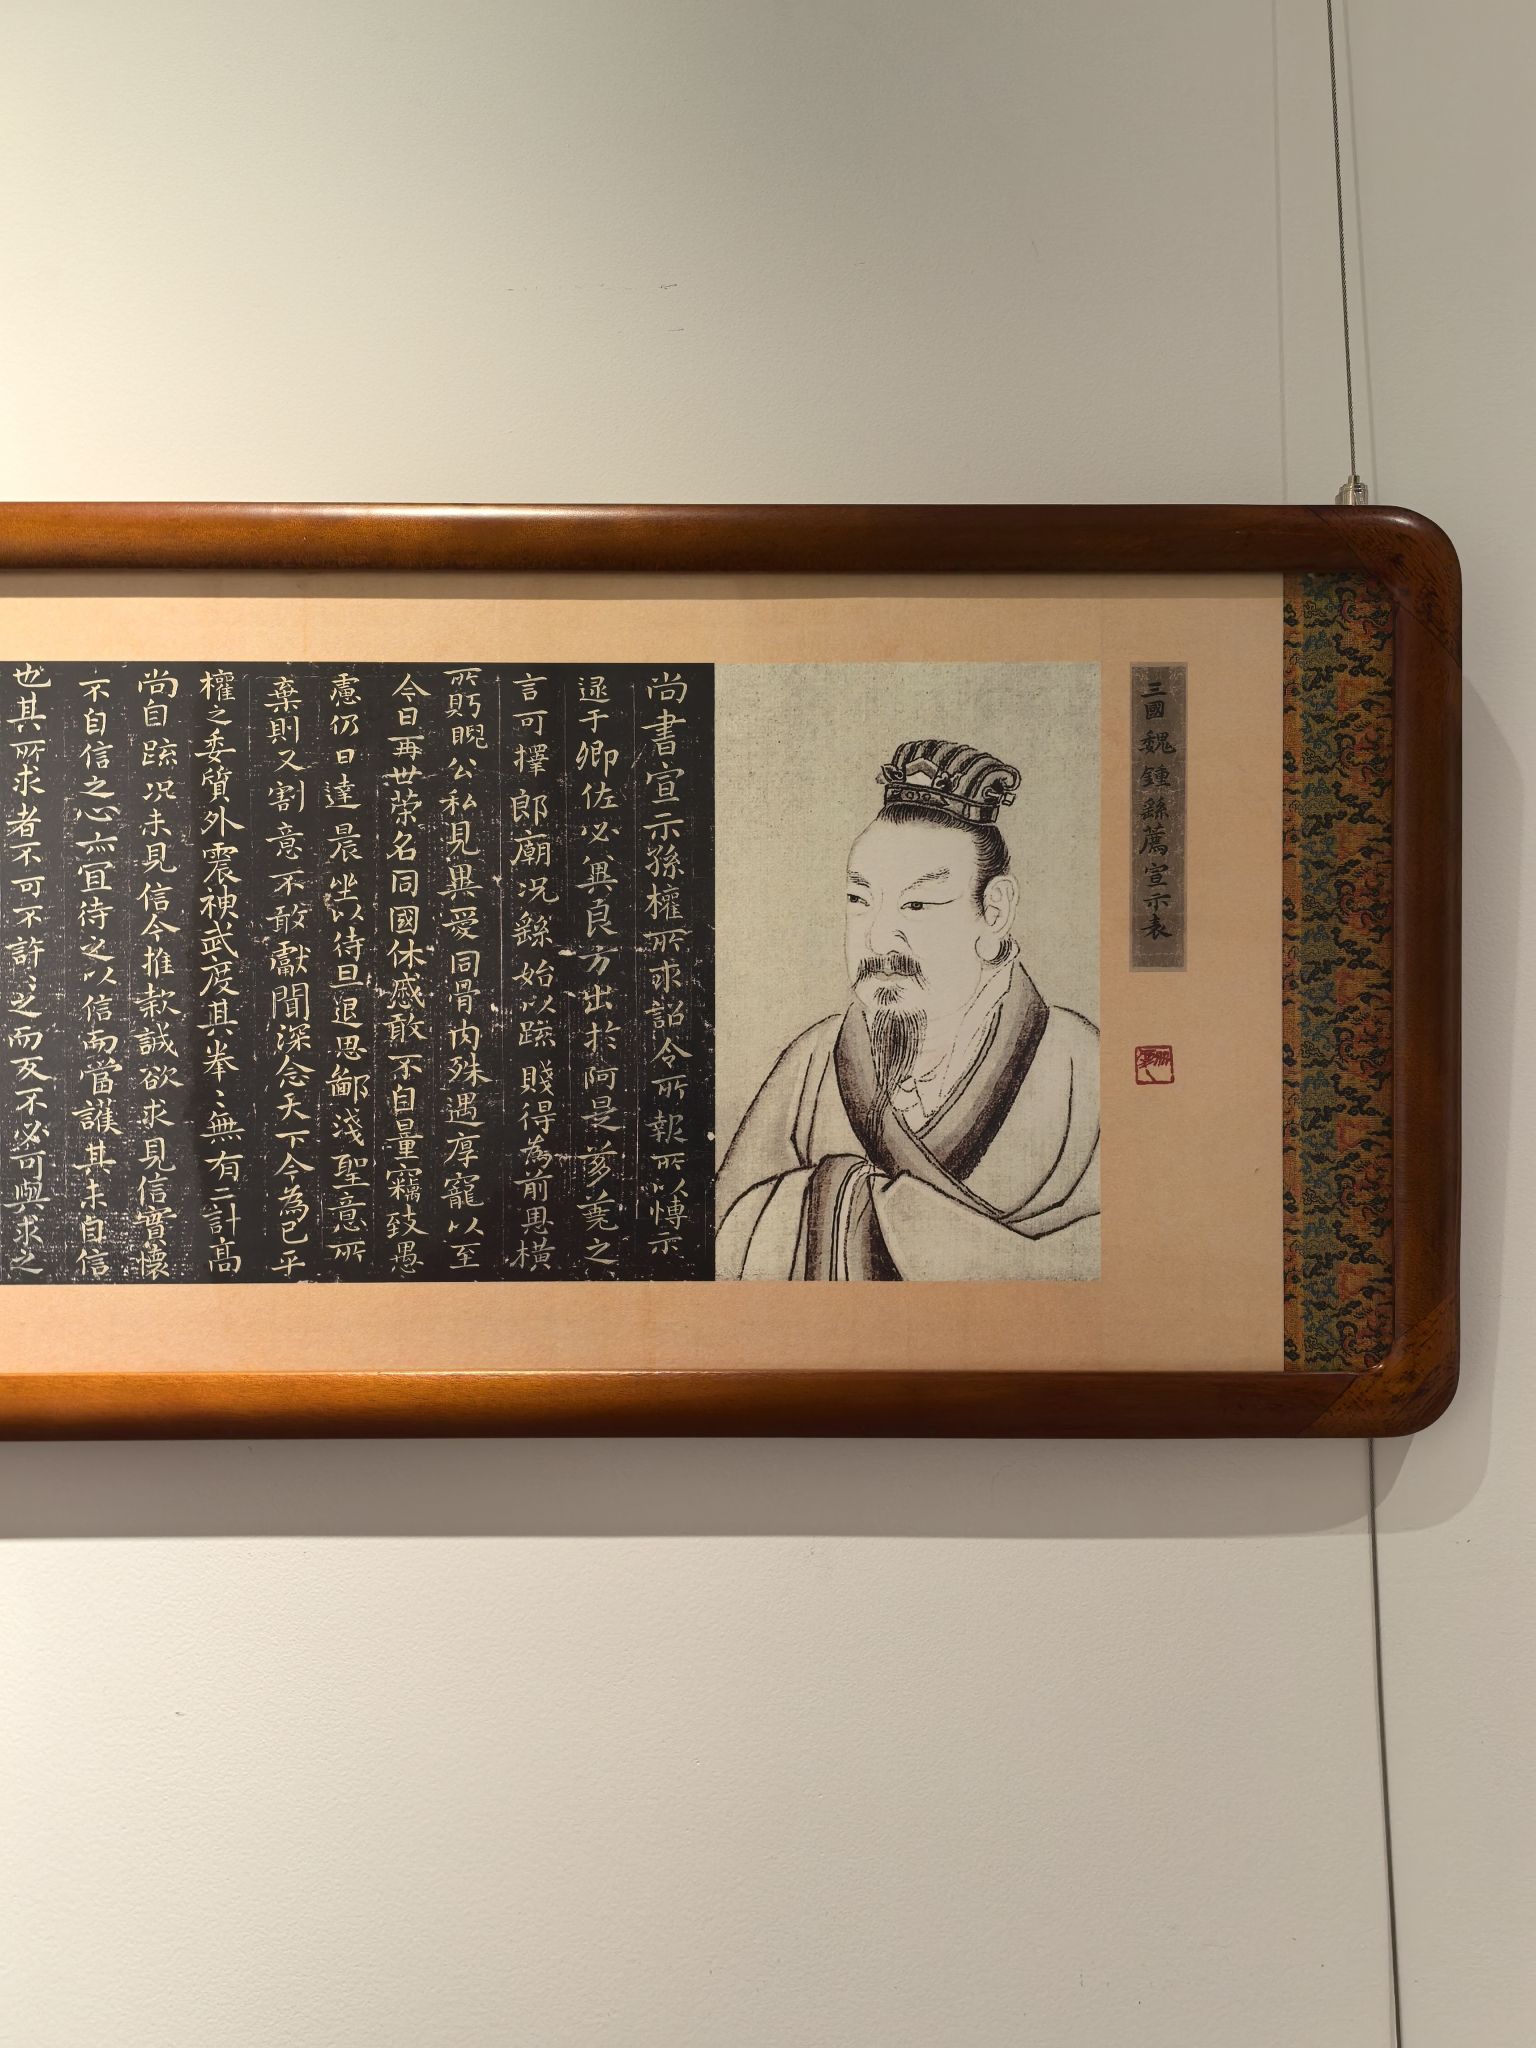 三國魏鍾繇薦宣示表
尚書宣示孫權所求詔令所報所以博示
逮于卿佐必冀良方出於阿是芻蕘之
言可擇郎廟況繇始以疏賤得為前恩橫
所眄睨公私見異愛同骨肉殊遇厚寵以至
今日再世榮名同國休慼敢不自量竊致愚
慮仍日達晨坐以待旦退思鄙淺聖意所
棄則又割意不敢獻聞深念天下今為已平
權之委質外震神武度其拳拳無有二計高
尚自疏況未見信今推款誠欲求見信實懷
不自信之心亦宜待之以信而當護其未自信
也其所求者不可不許許之而反不必可與求之